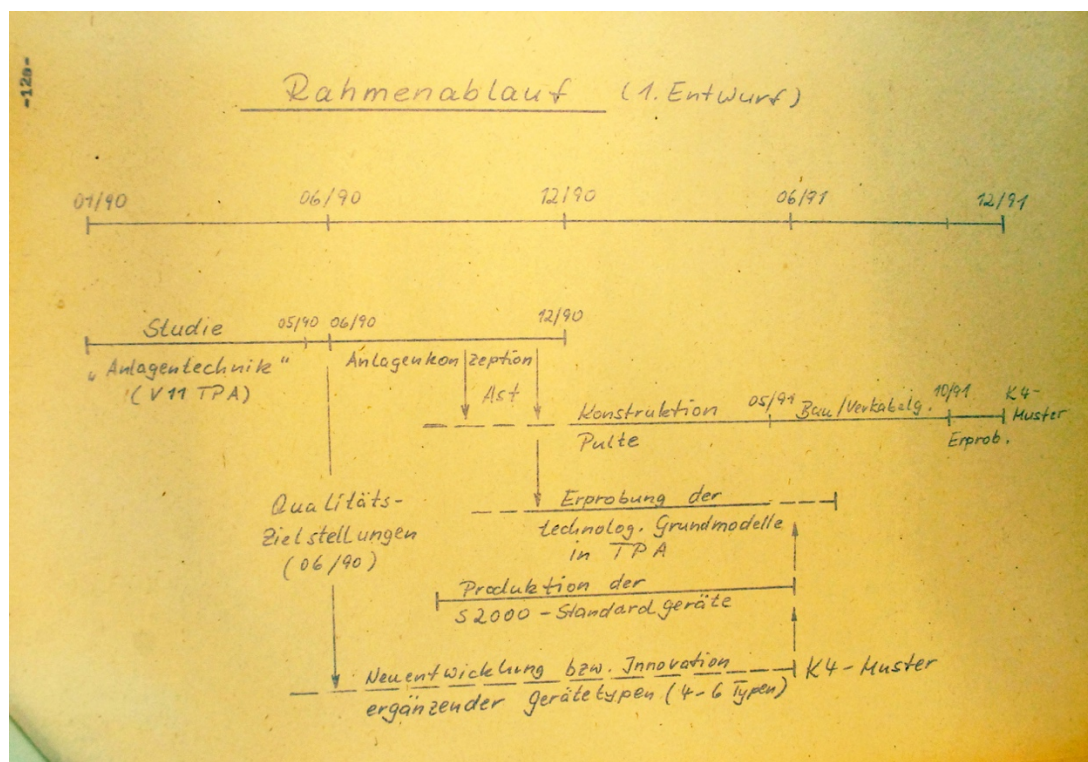 -12a-
Rahmenablauf (1. Entwurf)
01/90 06/90 12/90 06/91 12/91
Studie 05/90 06/90 12/90
„Anlagentechnik“ Anlagenkonzeption
(V11 TPA) Ast
Konstruktion 05/91 Bau/Verkabelg. 10/91 K4-
Pulte Erprob. Muster
Qualitäts-
Zielstellungen
(06/90)
Erprobung der
technolog. Grundmodelle
in TPA
Produktion der
S2000-Standardgeräte
Neuentwicklung bzw. Innovation K4-Muster
ergänzender Gerätetypen (4-6 Typen)